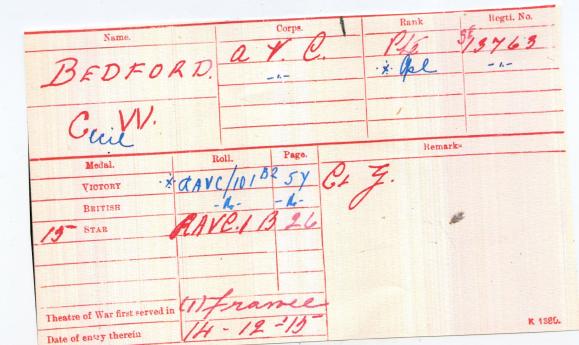 Name. Corps. Rank Regtl. No.
BEDFORD. A V. C. Pte SE/13763
-"- * Cpl -"-
Cecil W.
Medal. Roll. Page. Remarks
VICTORY * RAVC/101 B2 54 Cl Z.
BRITISH -do- -do-
15 STAR RAVC.1 B 26
Theatre of War first served in (1) France
Date of entry therein 14-12-15
K 1380.